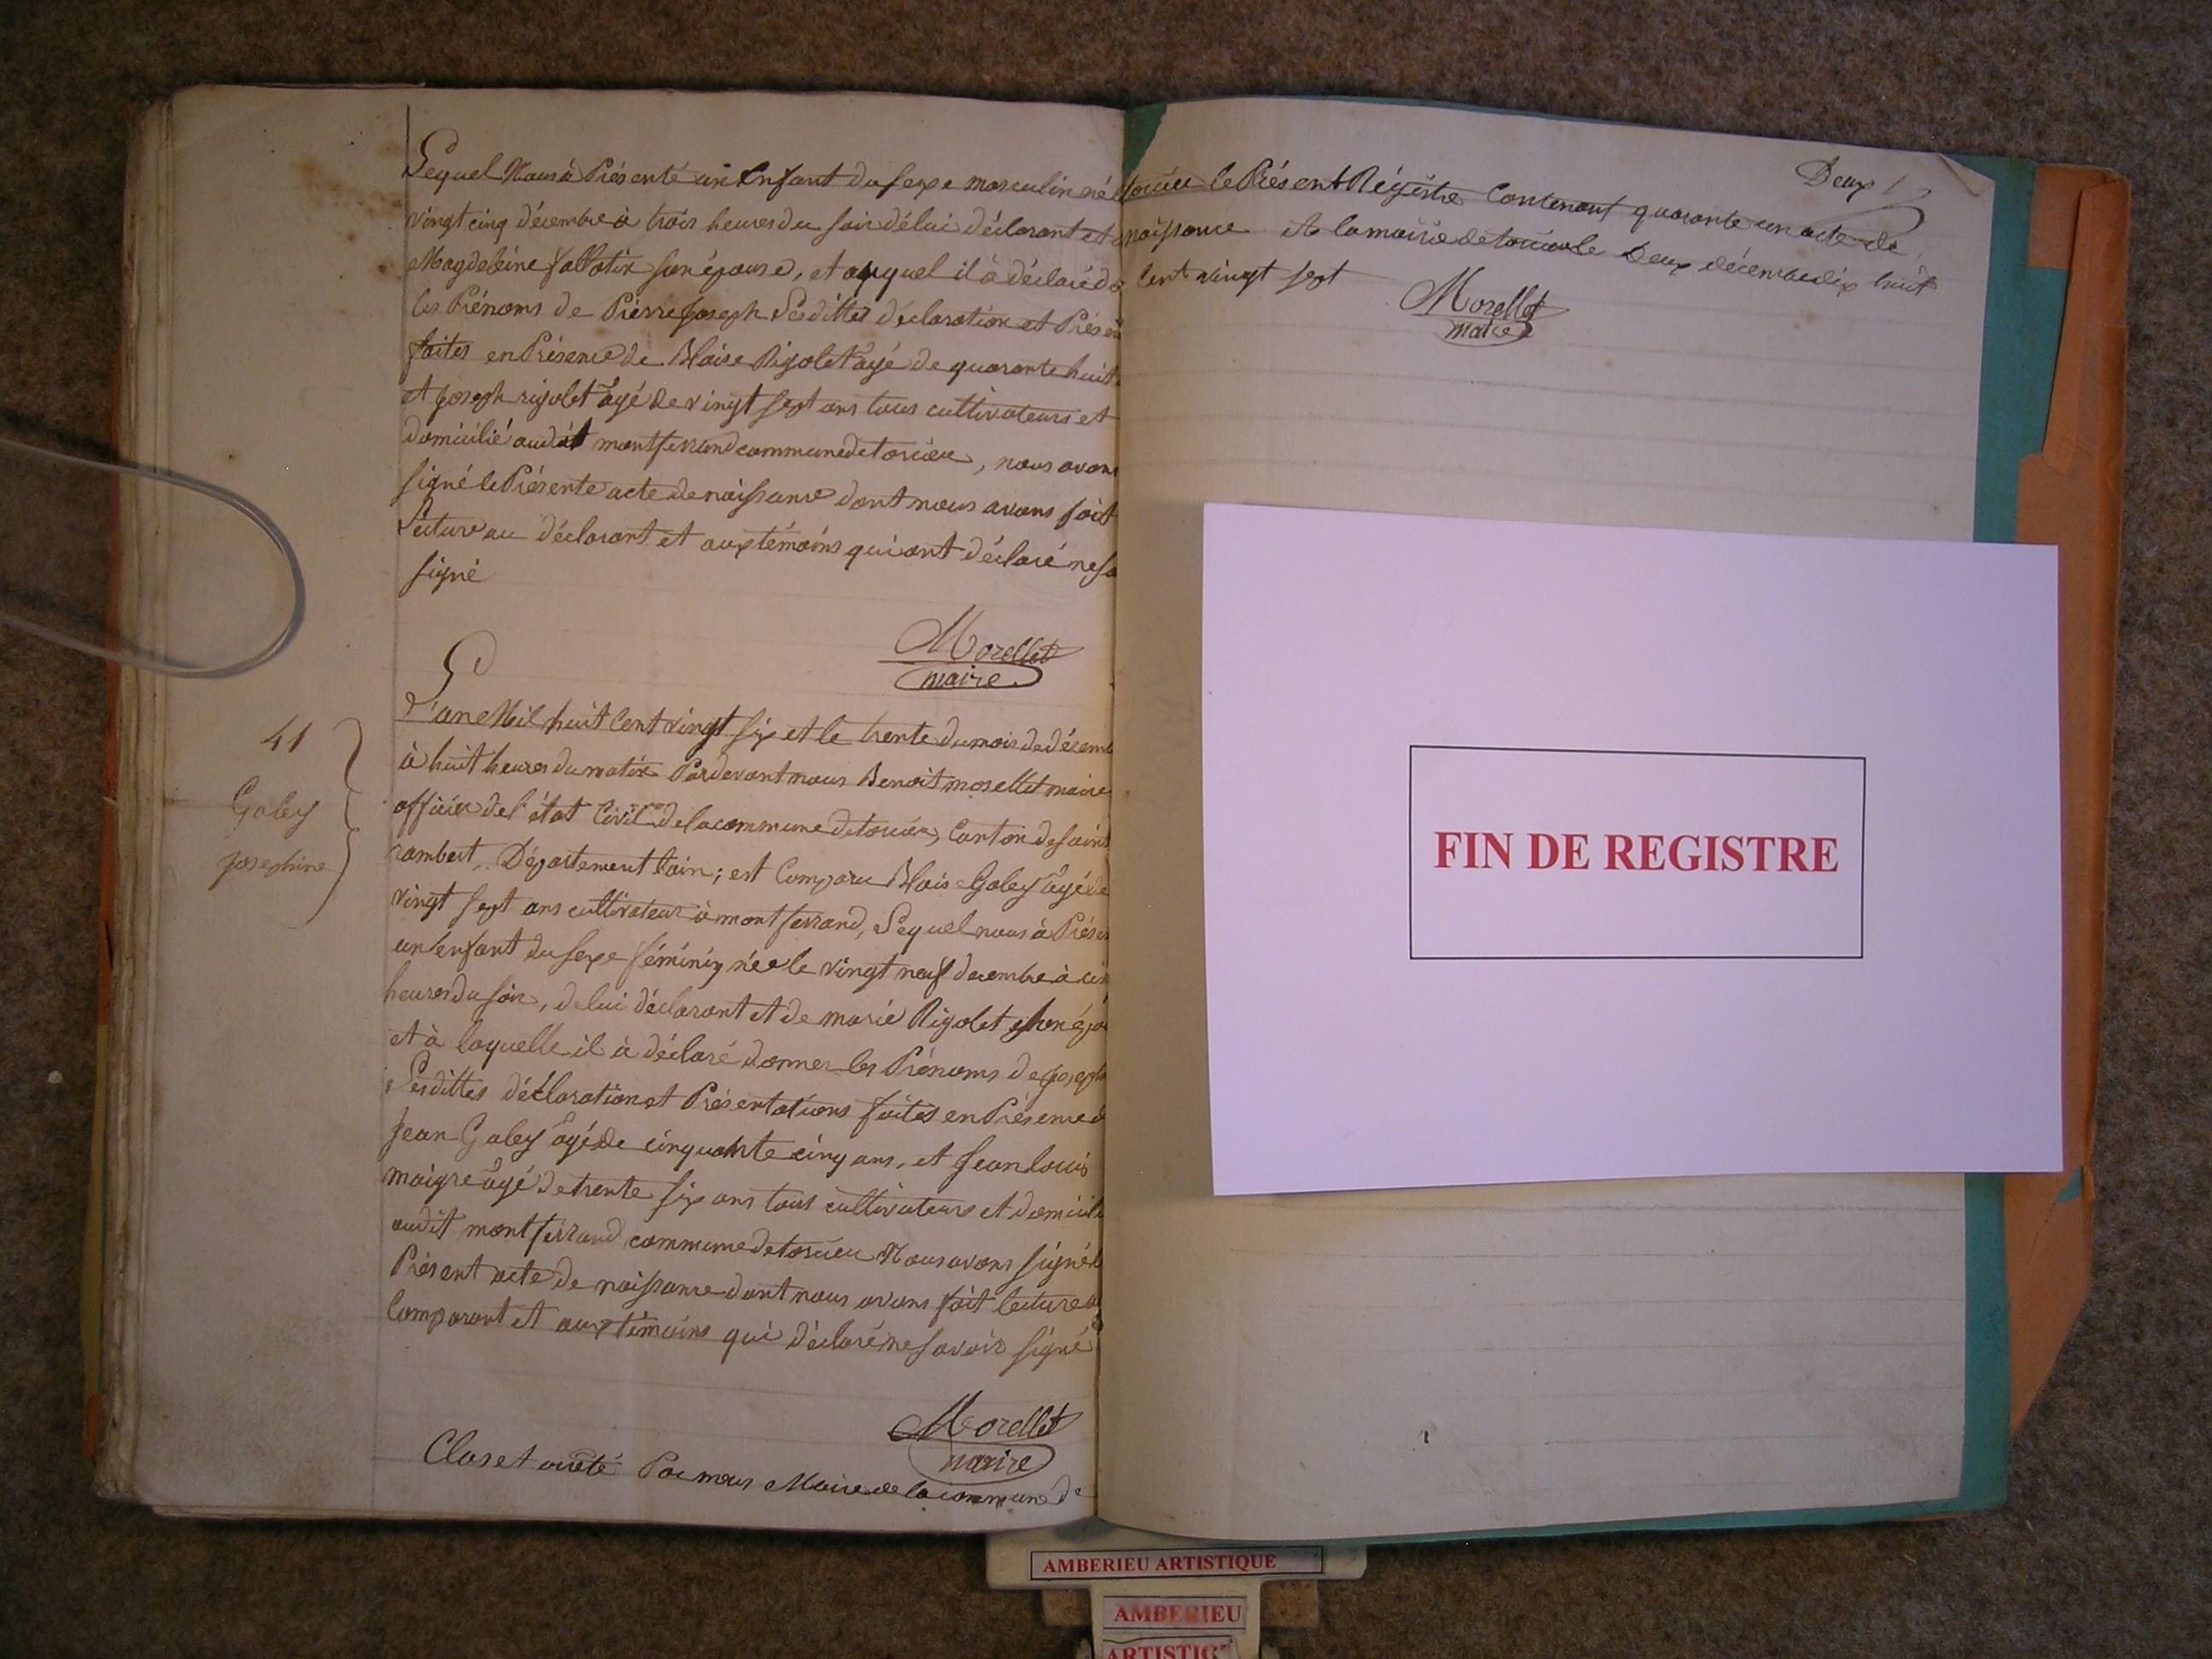 Lequel Nous à Présenté un Enfant du sexe masculin né
vingt cinq décembre à trois heures du soir délui déclarant et
Magdeleine fallatix son épouse, et auquel il à déclaré do
les Prénoms de Pierre Joseph Lesdittes déclaration et Présen
faites en Présence de Blaise Rigolet agé de quarante huit
et Joseph rigolet agé de vingt sept ans tous cultivateurs et
domicilié audit montferrand commune de torcieu, nous avons
signé le Présente acte de naissance dont nous avons fait
Lecture au déclarant et aux témoins qui ont déclaré ne sa
signé
Morellet
maire
41
Galey
Josephine
L'an Mil huit Cent vingt six et le trente du mois de décem
à huit heures du matin Pardevant nous Benoit morellet maire
officier de l'état Civil de la commune de torcieu, Canton de saint
rambert, Département lain; est Comparu Blaise Galey agé de
vingt sept ans cultivateur à montferrand, Lequel nous à Présen
un enfant du sexe féminin née le vingt neuf decembre à cin
heures du soir, de lui déclarant et de marie Rigolet son épou
et à laquelle il à déclaré donner les Prénoms de Joseph
Lesdittes déclaration et Présentations faites en Présence d
Jean Galey agé de cinquante cinq ans, et Jean louis
maigre agé de trente six ans tous cultivateurs et domicili
audit montferrand commune de torcieu Nous avons signé l
Présent acte de naissance dont nous avons fait lecture a
Comparant et aux témoins qui déclaré ne savoir signé
Morellet
maire
Clos et arêté Par nous Maire de la commune de
Deux
torcieu le Présent Régistre Contenant quarante un acte de
naissance et la mairie de torcieu le Deux décembre dix huit
Cent vingt sept
Morellet
maire
FIN DE REGISTRE
AMBERIEU ARTISTIQUE
AMBERIEU
ARTISTIQ